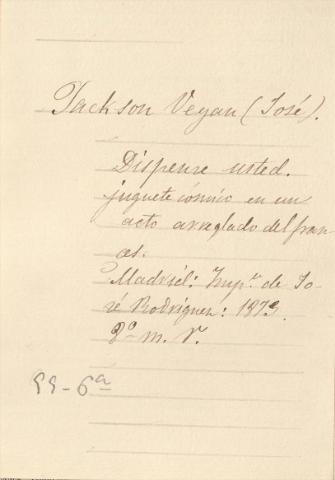 Jackson Veyan (José).
Dispense usted.
juguete cómico en un
acto arreglado del fran-
cés.
Madrid: Imp.ª de Jo-
sé Rodriguez: 1879
8º m. r.
99-6ª